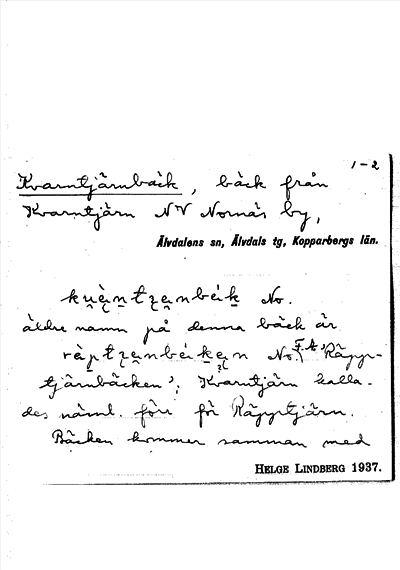 1-2
Kvarntjärnbäck, bäck från
Kvarntjärn NV Nornäs by,
Älvdalens sn, Älvdals tg, Kopparbergs län.
No.
äldre namn på denna bäck är
No. F.A., 'Räpp-
tjärnbäcken'; Kvarntjärn kalla-
des näml. förr för Räpptjärn.
Bäcken kommer samman med
HELGE LINDBERG 1937.